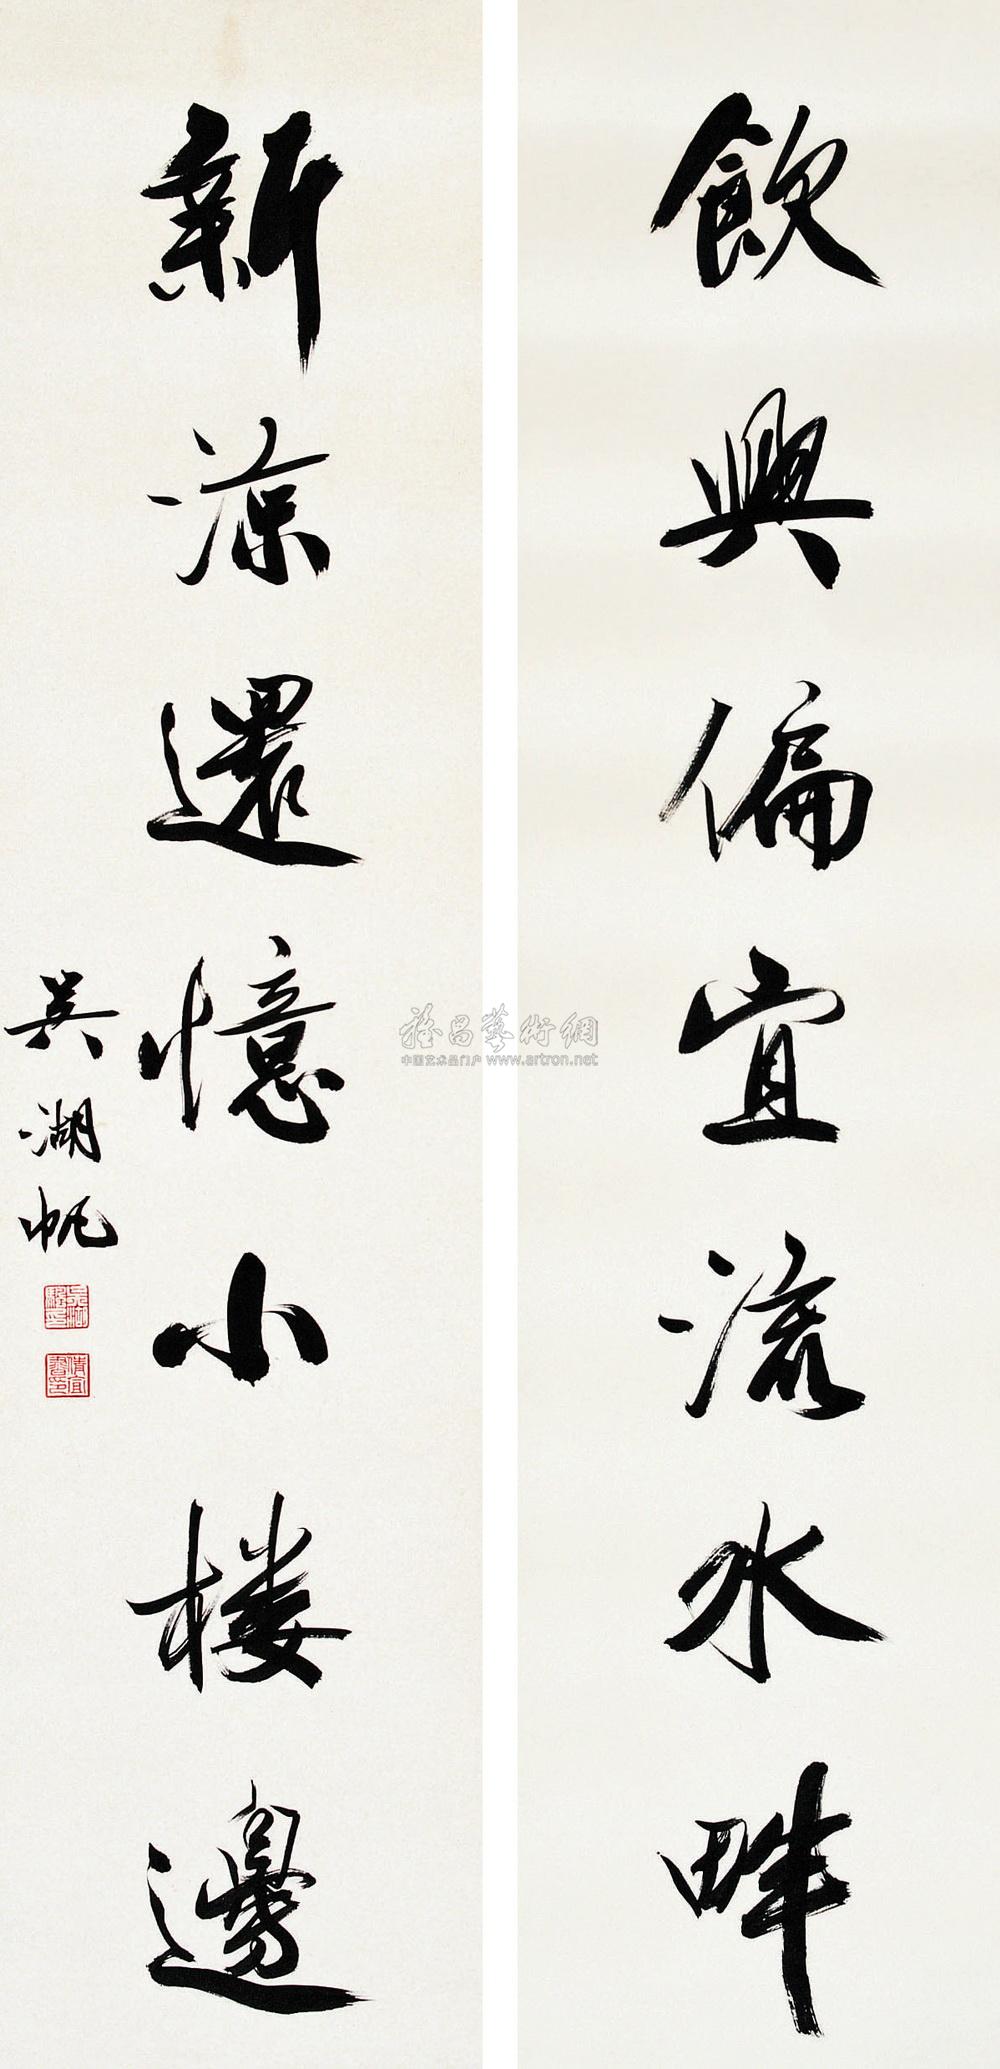 飲興偏宜流水畔
新涼還憶小樓邊
吳湖帆
雅昌藝術網
中国艺术品门户 www.artron.net